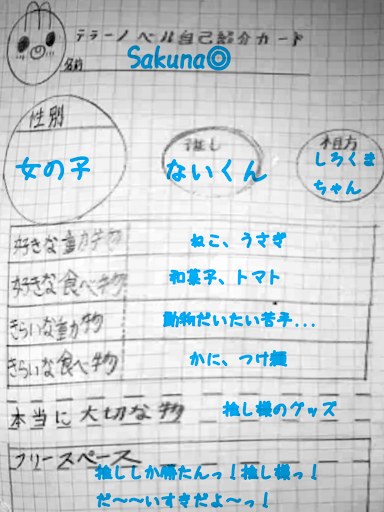 テラーノベル自己紹介カード
名前 Sakuna◎
性別
女の子
推し
ないくん
相方
しろくま
ちゃん
好きな動物 ねこ、うさぎ
好きな食べ物 和菓子、トマト
きらいな動物 動物だいたい苦手...
きらいな食べ物 かに、つけ麺
本当に大切な物 推し様のグッズ
フリースペース
推ししか勝たんっ!推し様っ!
だ〜〜いすきだよ〜っ!